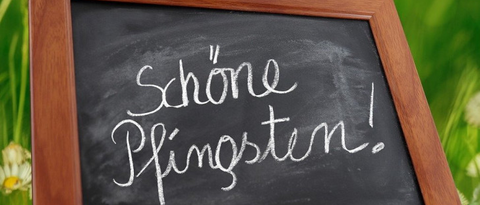 Schöne
Pfingsten!